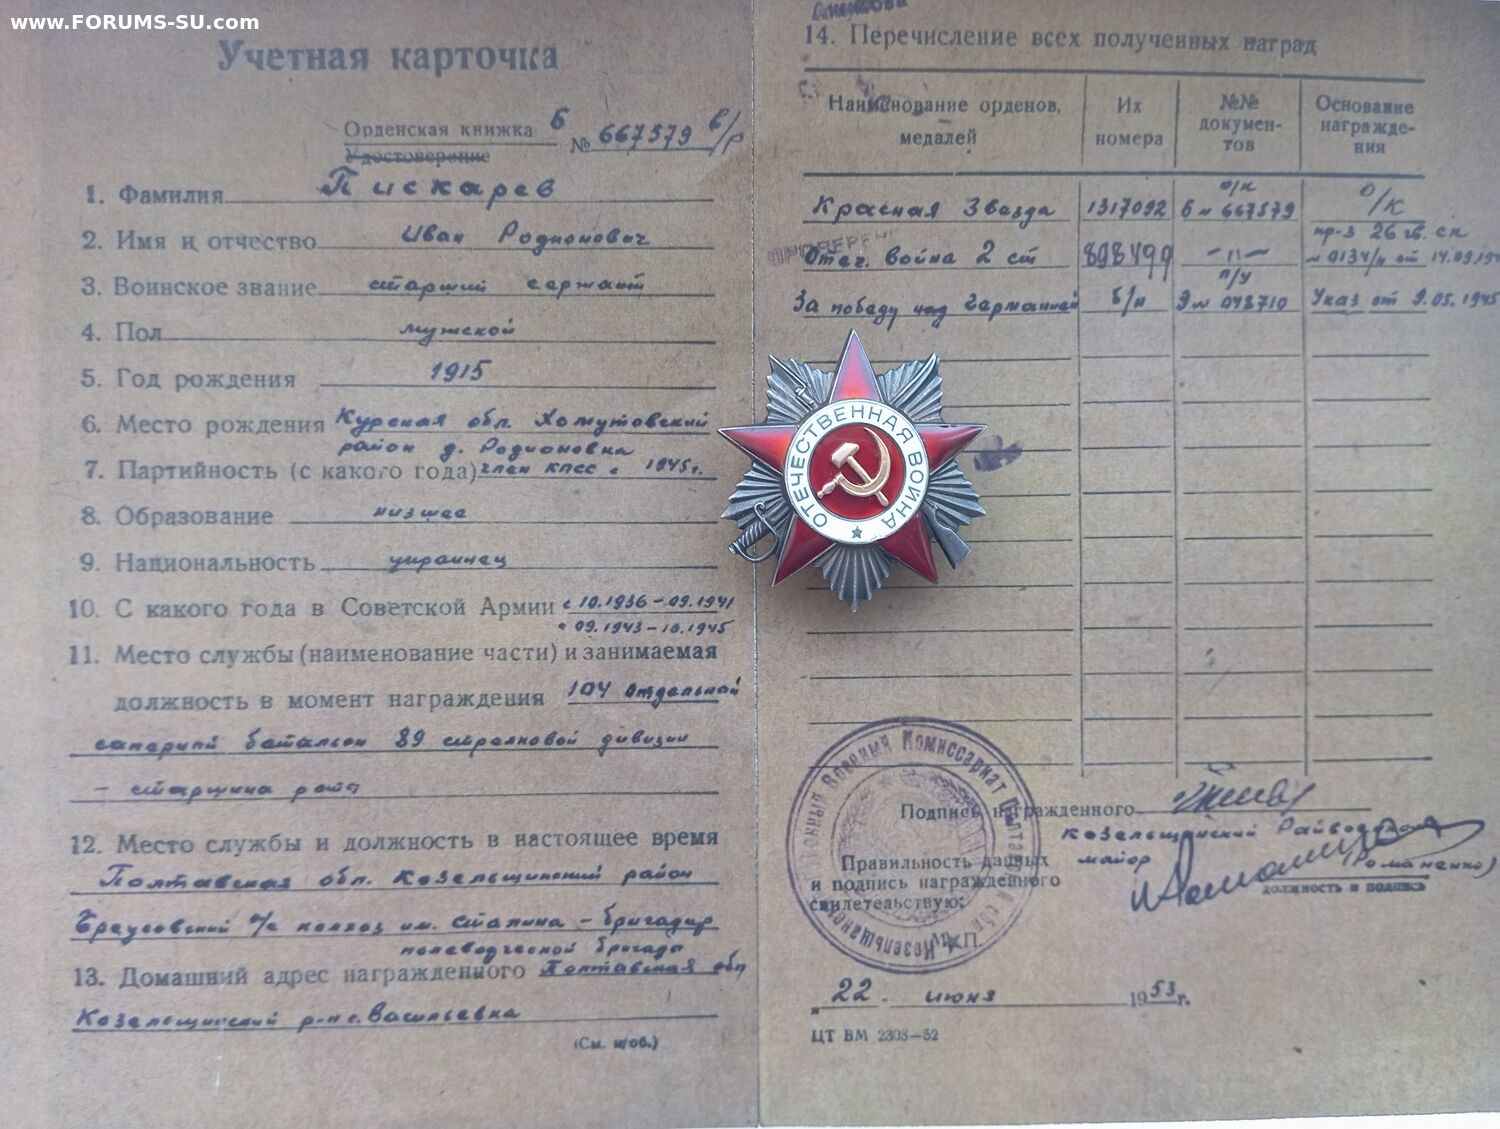 www.FORUMS-SU.com
Учетная карточка
Орденская книжка Б № 667579 в/р
Удостоверение
1. Фамилия Пискарев
2. Имя и отчество Иван Родионович
3. Воинское звание старший сержант
4. Пол мужской
5. Год рождения 1915
6. Место рождения Курская обл. Хомутовский
район д. Родионовка
7. Партийность (с какого года) член КПСС с 1945г.
8. Образование низшее
9. Национальность украинец
10. С какого года в Советской Армии с 10.1936-09.1941
с 09.1943-10.1945
11. Место службы (наименование части) и занимаемая
должность в момент награждения 104 отдельный
саперный батальон 89 стрелковой дивизии
- старшина роты
12. Место службы и должность в настоящее время
Полтавская обл. Козельщинский район
Бреусовский с/с колхоз им. Сталина - бригадир
полеводческой бригады
13. Домашний адрес награжденного Полтавская обл
Козельщинский р-н с. Васильевка
(См. н/об.)
14. Перечисление всех полученных наград
Наименование орденов, медалей
Их номера
№№ документов
Основание награждения
Красная Звезда 1317092 о/к Б № 667579 о/к
ПРОВЕРЕН
Отеч. война 2 ст 898499 -"- пр-з 26 гв. ск № 0134/н от 14.09.194
За победу над Германией б/н п/у Э № 048710 Указ от 9.05.1945
ОТЕЧЕСТВЕННАЯ ВОЙНА
Подпись награжденного
Козельщинский Райвоенком
майор (Романенко)
должность и подпись
Правильность данных
и подпись награжденного
свидетельствую:
М.П.
Военный Комиссариат
"22" июня 1953 г.
ЦТ ВМ 2308—52